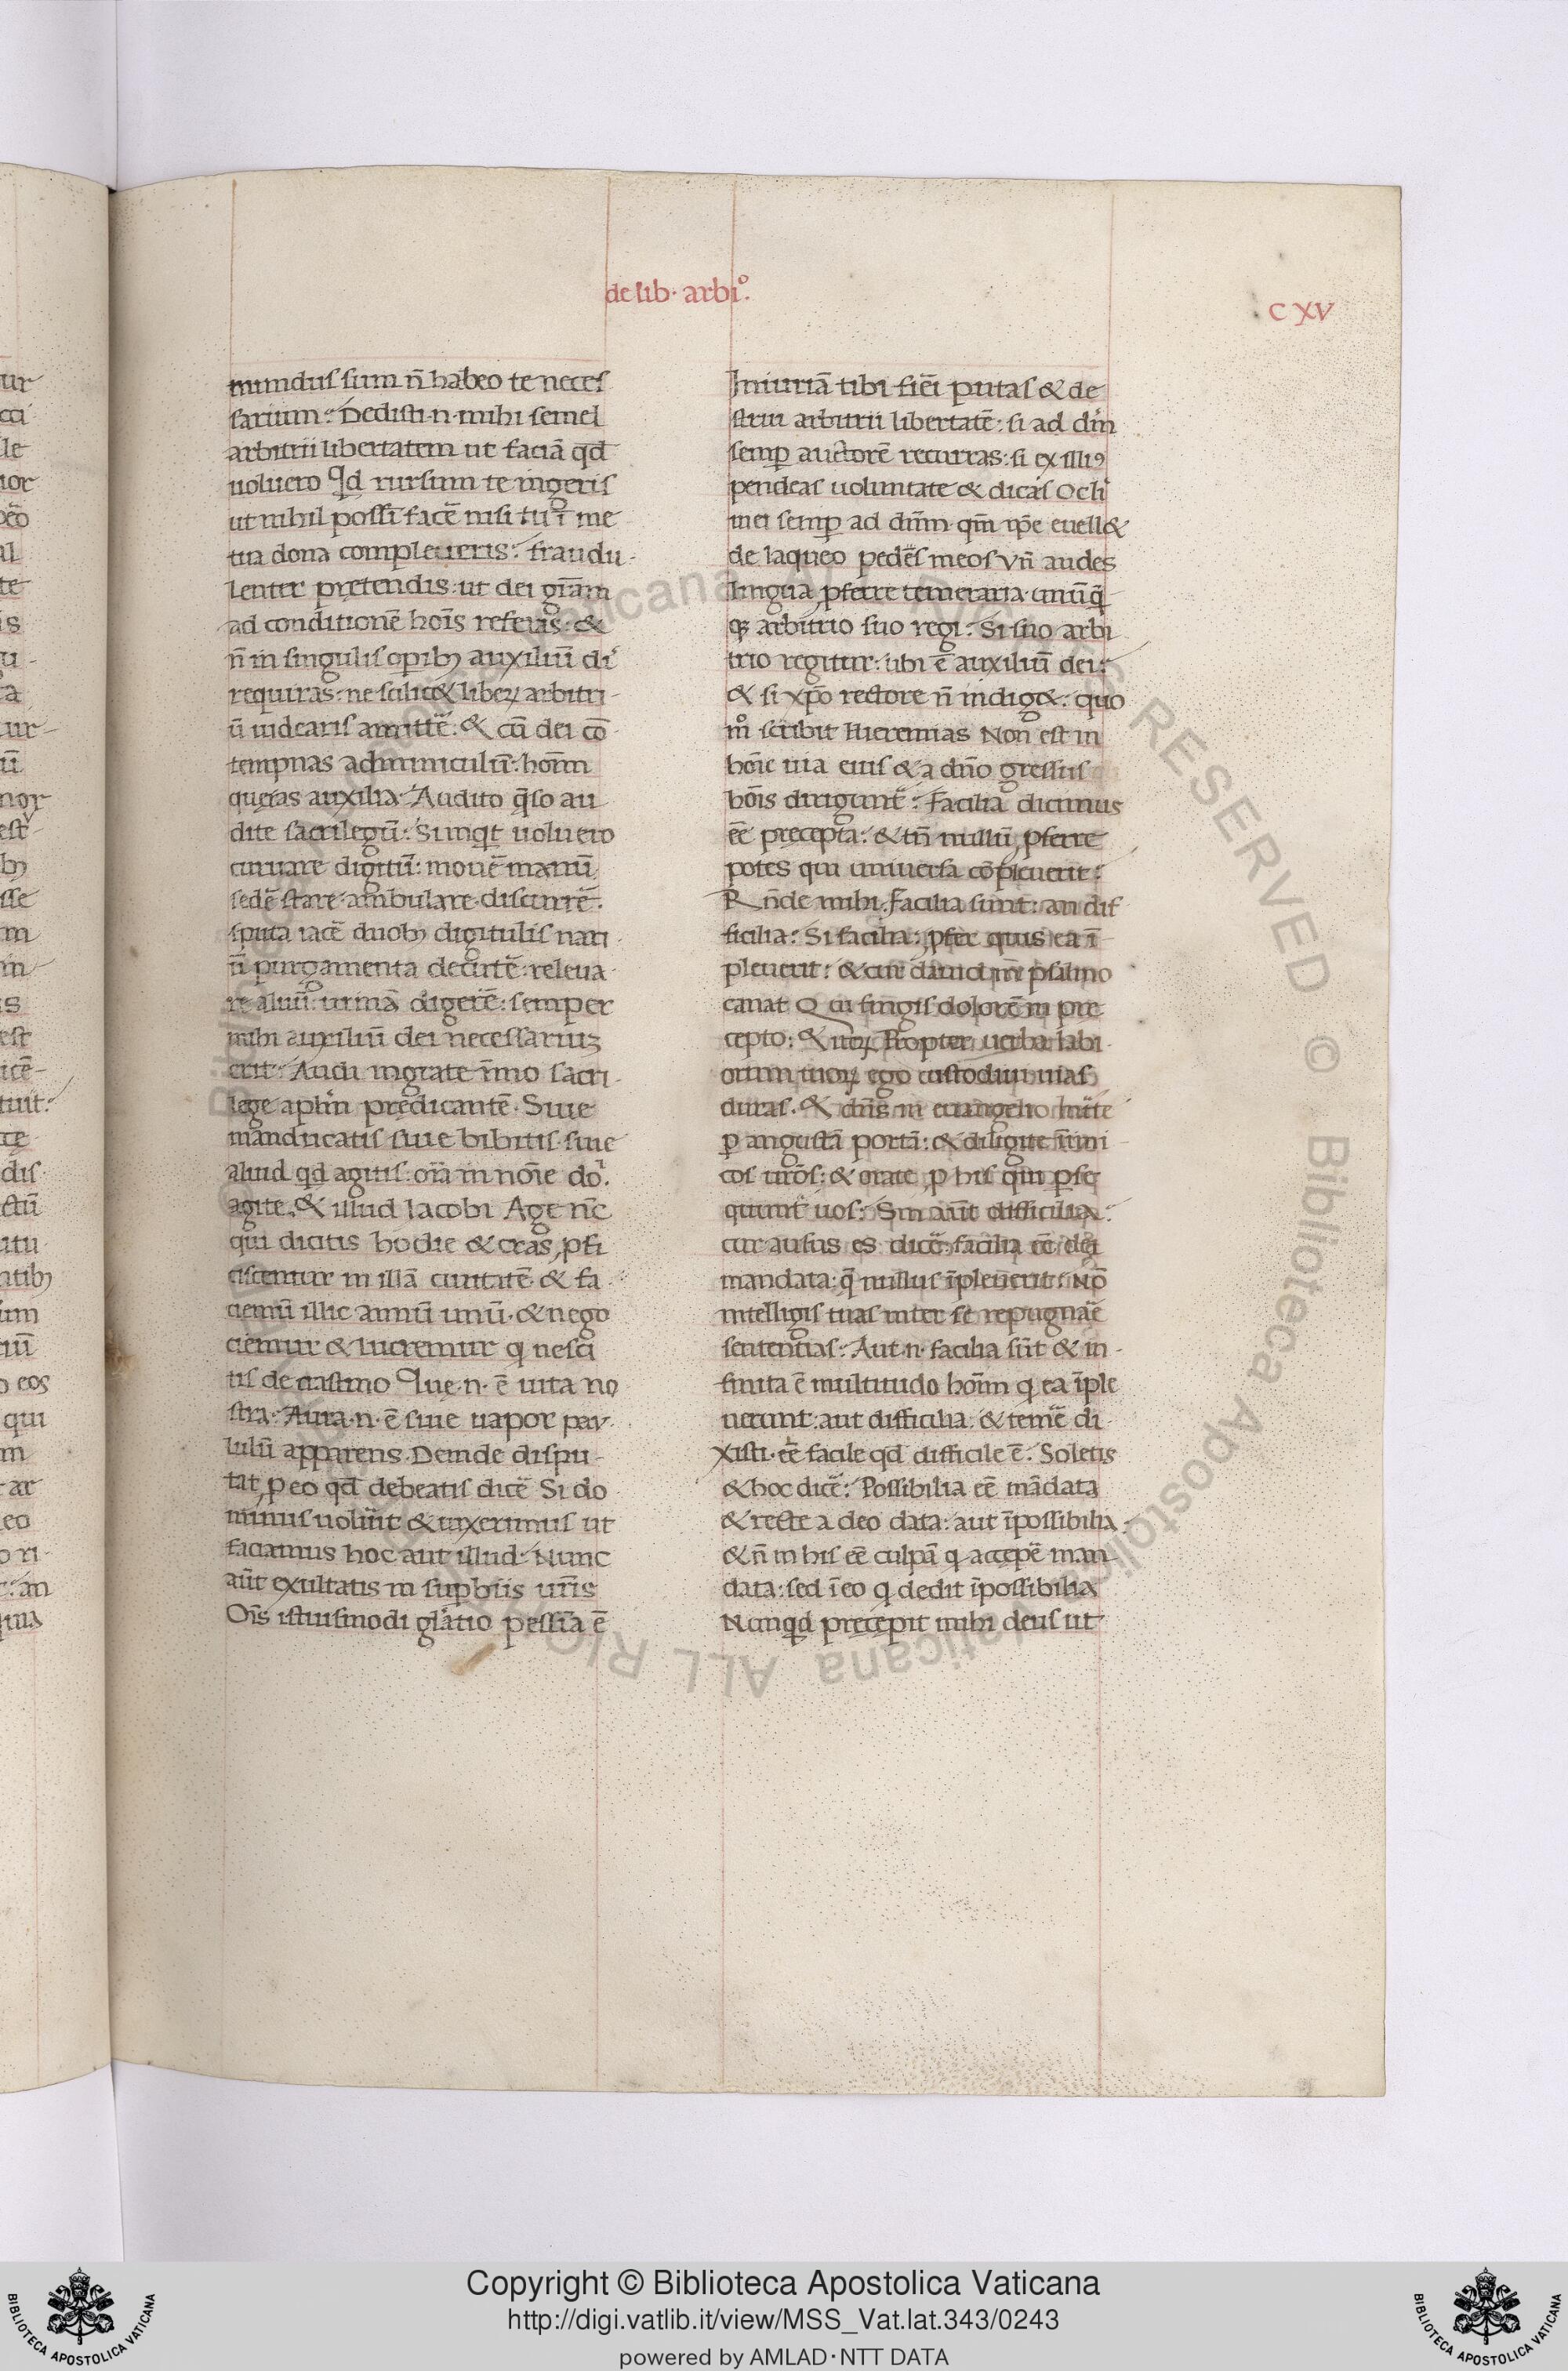 de lib· arbi͛o.
C XV
mundus sum n̄ habeo te neces
sarium: Dedisti·n·mihi semel
arbitrii libertatem ut faciā qd̄
uoluero Qd rursum te ingeris
ut nihil possī facē nisi tu ī me
tua dona compleueris: fraudu-
lenter pretendis·ut dei grām
ad conditionē hoīs referas: &
n̄ in singulis oꝑibꝫ auxiliū di
requiras: ne scilic& liberꝝ arbitri-
ū uidearis amittē: & cū dei cō
tempnas adminiculū: hoīm
queras auxilia· Audito q̄so au
dite sacrilegū: Si inqt uoluero
curuare digitū: mouē manū
sedē stare·ambulare·discurrē·
sputa iacē duobꝫ digitulis nari-
ū purgamenta decutē: releua-
re aluū: urinā digerē: semper
mihi auxiliū dei necessariuꝫ
erit: Audi ingrate īmo sacri-
lege aplm̄ predicantē· Siue
manducatis siue bibitis·siue
aliud qd agitis: oīa in noīe do.
agite. & illud Iacobi Age nc̄
qui dicitis hodie & cras ꝓfi
ciscemur in illā ciuitatē & fa
ciemū illic annū unū·& nego
ciemur & lucremur q nesci
tis de crastino Que·n·ē uita no
stra: Aura·n·ē siue uapor par-
lulū apparens. Deinde dispu-
tat, ꝑ eo qd̄ debeatis dicē Si do-
minus uolūit & uixerimus ut
faciamus hoc aut illud· Nunc
aūt exultatis in supbiis uris̄
Oīs istiusmodi glatio pessīa ē
Iniuriā tibi fiēi putas & de
strui arbitrii libertatē: si ad dm̄
semꝑ auctorē recurras: si ex illiꝰ
pendeas uoluntate & dicas Ocli
mei semꝑ ad dn̄m qm̄ ip̄e euell&
de laqueo pedes meos Vn̄ audes
lingua ꝓferre temeraria·unūq̄
qꝫ arbitrio suo regi: Si suo arbi
trio regitur: ubi ē auxiliū dei:
& si xp̄o rectore n̄ indig&: quo
mo scribit Hieremias Non est in
hoīe uia eius & a dn̄o gressus
hoīs dirigunt: Facilia dicimus
eē precepta: & tn̄ nullū ꝓferre
potes qui uniuersa cōpleuerit:
Rn̄de mihi. Facilia sunt: an dif
ficilia: Si facilia: ꝓfer quis ea ī
pleuerit: & cur dauid in psalmo
canat Qui fingis dolorē in pre
cepto: & iterꝝ Propter uerba labi
orum tuoꝝ ego custodiui uias
duras· & dn̄s in euangelio intrate
ꝑ angustā portā: & diligite inimi
cos uros̄: & orate ꝓ his qui ꝑse
quunt uos: Sin aūt difficilia:
cur ausus es dicē facilia eē dei
mandata: q̄ nullus īpleuerit: Nō
intelligis tuas inter se repugnāe
sententias: Aut·n·facilia sūt & in-
finita ē multitudo hoīm q ea īple
uerunt: aut difficilia: & temē di-
xisti·eē facile qd difficile ē· Soletis
& hoc dicē: Possibilia eē mādata
& recte a deo data: aut īpossibilia·
& n̄ in his eē culpā q accepē man
data: sed ī eo q dedit īpossibilia
Nunqd precepit mihi deus ut
Copyright © Biblioteca Apostolica Vaticana
http://digi.vatlib.it/view/MSS_Vat.lat.343/0243
powered by AMLAD·NTT DATA
BIBLIOTECA APOSTOLICA VATICANA
BIBLIOTECA APOSTOLICA VATICANA